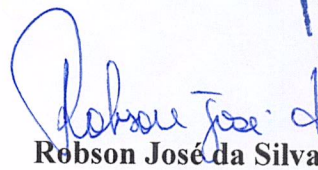 Robson José d
Robson José da Silva